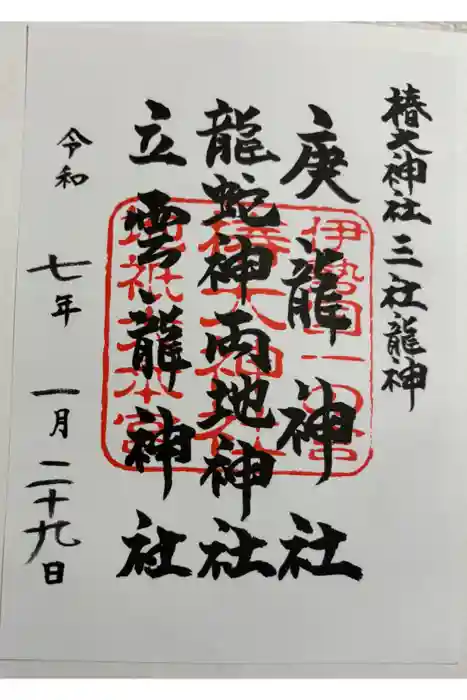 椿大神社三社龍神
庚龍神社
龍蛇神両地神社
立雲龍神社
令和七年一月二十九日
伊勢国一の宮
椿大神社
地祇大本宮